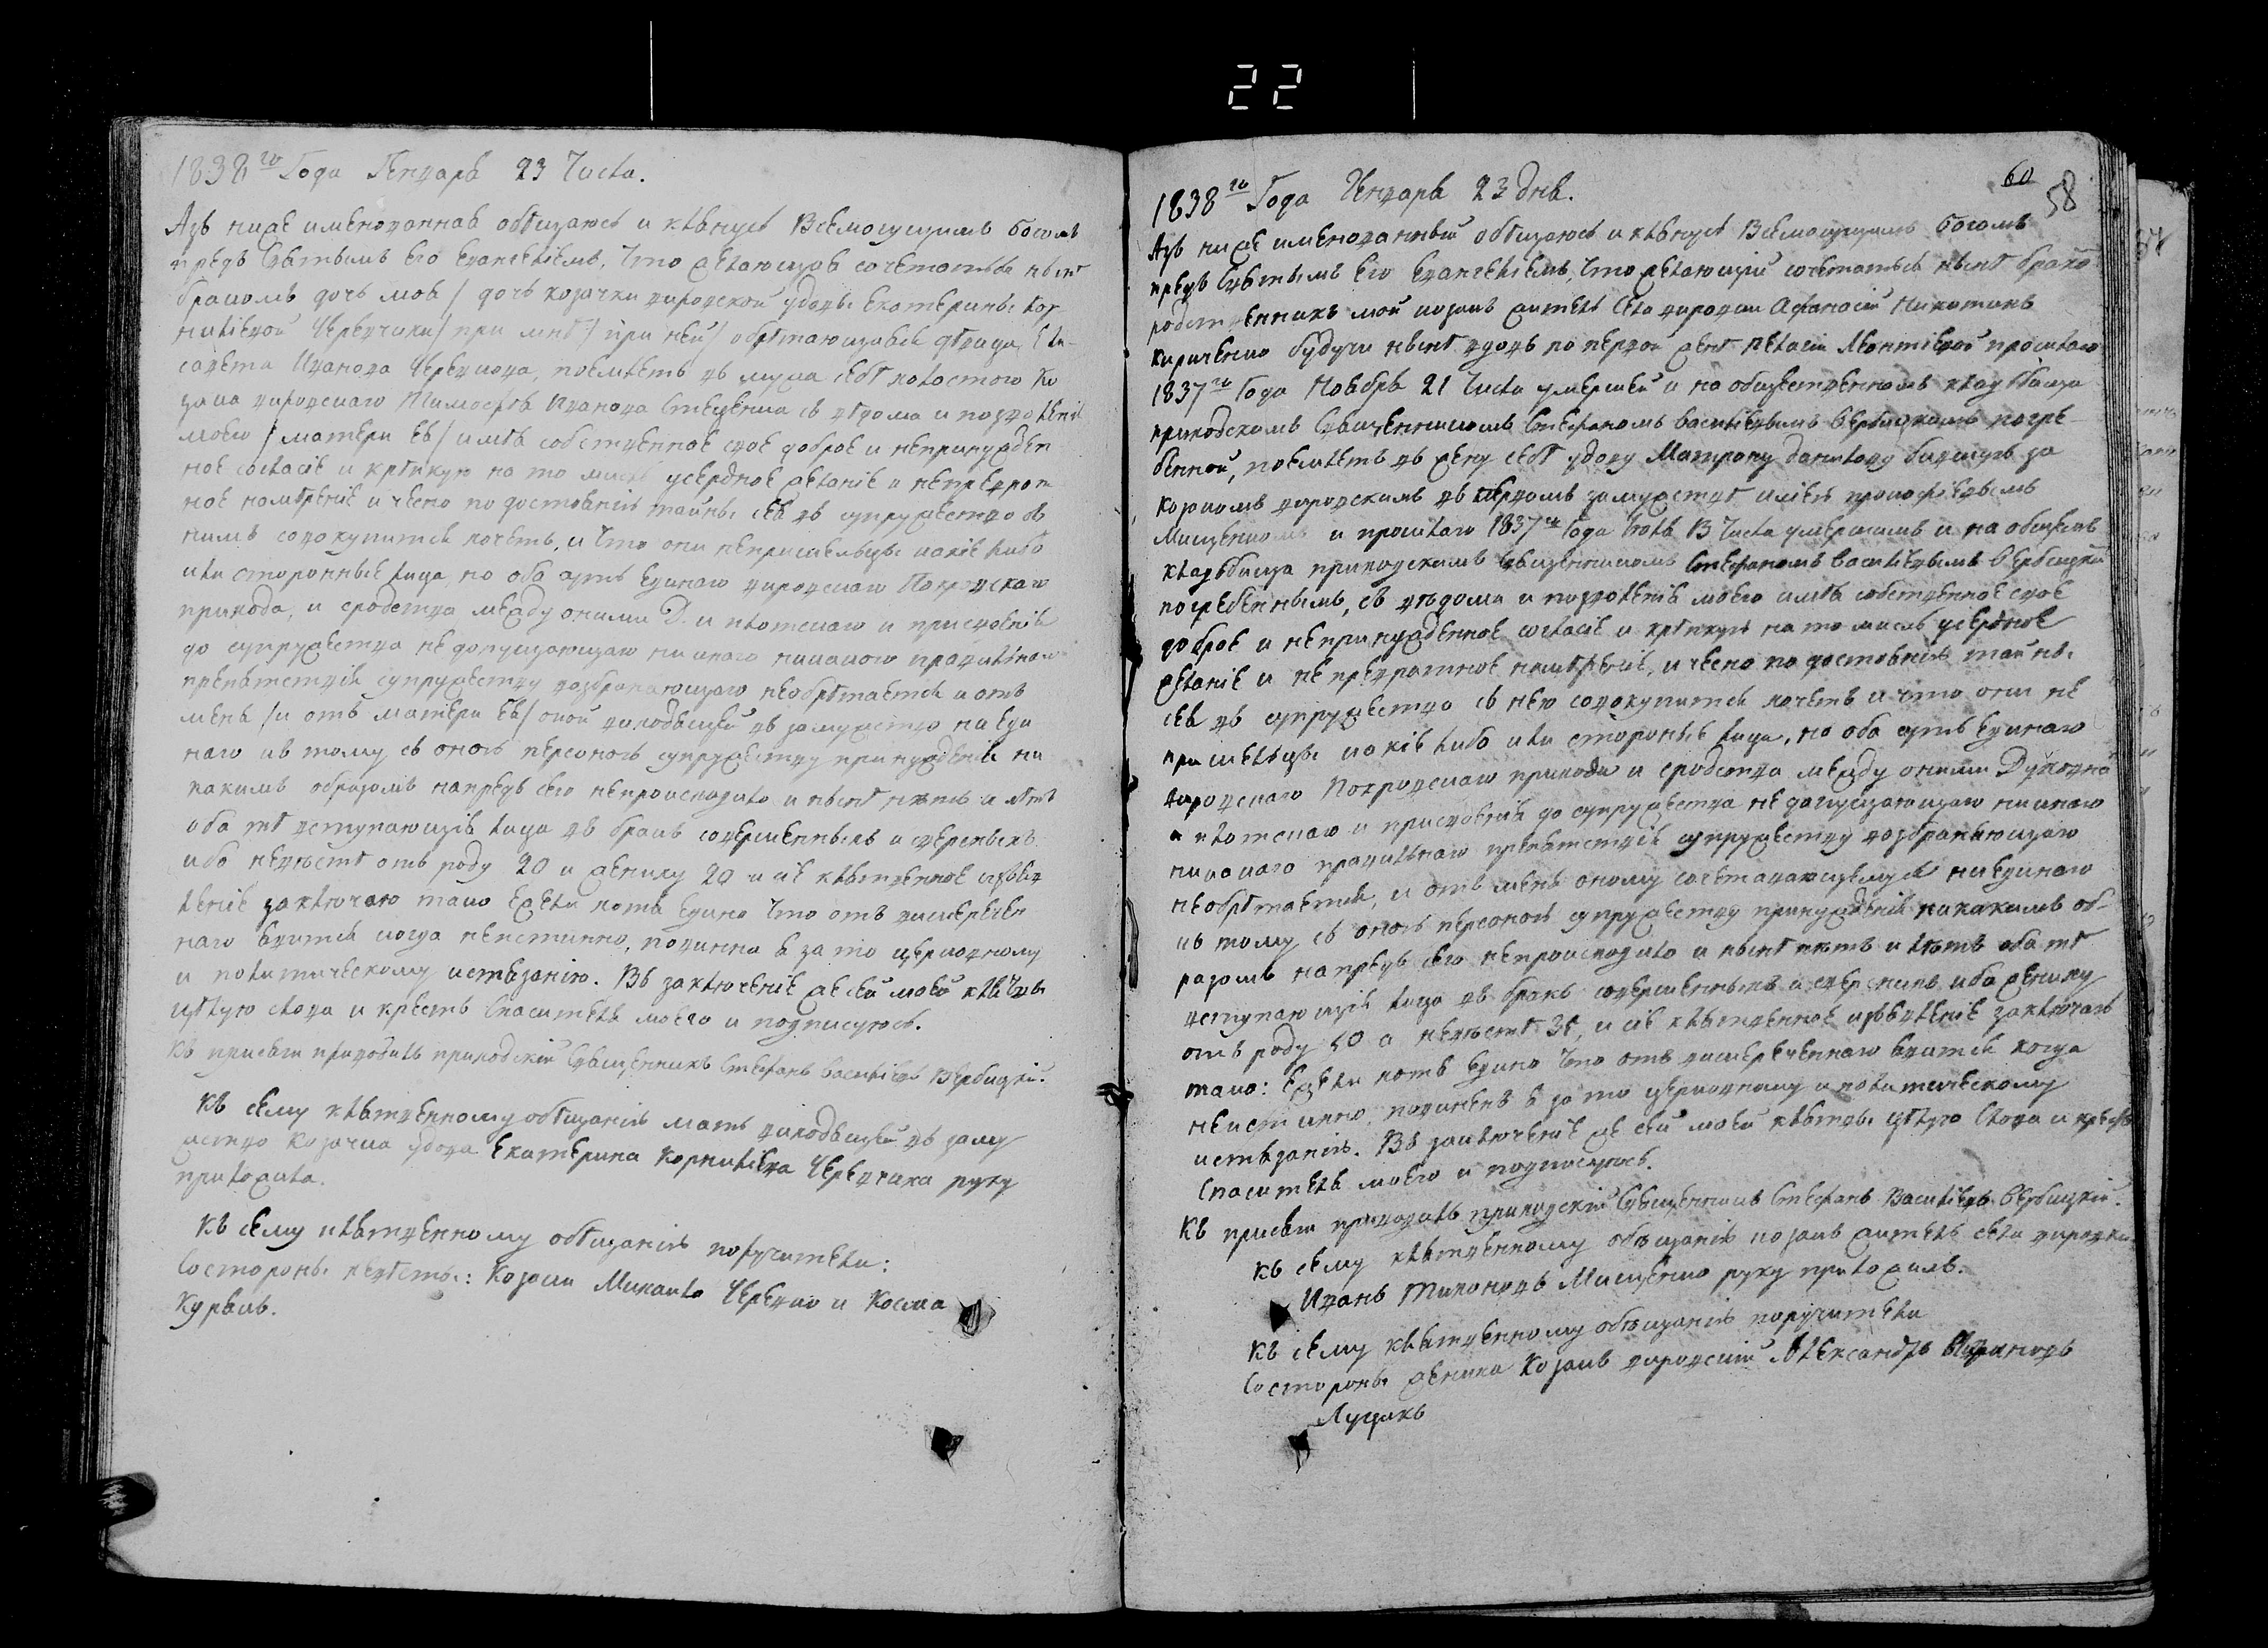 22
1838го Года Генваря 23 Числа.
Азъ ниже именованная обѣщаюсь и клянусь Всемогущимъ богомъ
предъ Святымъ Его Евангеліемъ, Что желающая сочетаться нынѣ
бракомъ дочь моя / дочь козачки вировской удовы Екатерины Кор
ниліевой Чередчики / при мнѣ / при ней / обрѣтающаяся дѣвица Ели-
савета Иванова Чередкова, поемлетъ въ мужа себѣ холостого Ко
зака вировскаго Тимофея Иванова Стеценка съ вѣдома и позволенія
моего / матери ея / имѣя собственное свое доброе и непринужден
ное согласіе и крѣпкую на то мысль усердное желаніе и непреврат
ное намѣреніе и чесно по достоянію тайны сея въ супружество съ
нимъ совокупится хочетъ, и Что они непришельцы какіе либо
или сторонныѣ лица, но оба суть единаго вировскаго Покровскаго
прихода, и сродства между оними Д. и плотскаго и присвоенія
до супружества не допущающаго ни инаго никакого правилнаго
препятствія супружеству возбраняющаго необрѣтается и отъ
меня / и отъ матери ея / оной виходящей въ замужство ни еди
наго къ тому съ оною персоною супружеству принужденія ни
какимъ образомъ напредъ сего непроисходило и нынѣ нѣтъ и лѣтъ
оба тѣ вступающіе лица въ бракъ совершенныхъ и сверсныхъ
ибо невѣстѣ отъ роду 20 и жениху 20 и сіе клятвенное изъяв
леніе заключаю тако ежели хотя едино Что отъ вишеречен
наго явится когда неистинно, повинна я за то церковному
и политическому истязанію. Въ заключеніе же сей моей клятвы
цѣлую слова и крестъ Спасителя моего и подписуюсь.
Къ присягѣ приводилъ приходскій Священникъ Стефанъ Василіевъ Вербицкій.
Къ сему клятвенному обѣщанію мать виходящей въ заму
жство Козачка удова Екатерина Корниліева Чередчика руку
приложила.
Къ сему клятвенному обѣщанію поручители:
Со стороны невѣсты: Козаки Михайло Чередко и Косма
Курѣнь.
60
58
1838го Года Генваря 23 дня.
Азъ ниже именованный обѣщаюсь и клянусь Всемогущимъ богомъ
предъ Святымъ Его Евангеліемъ, Что желающій сочетаться нынѣ бракомъ
родственникъ мой козакъ житель села вировки Афанасій Никитинъ
Кириченко будучи нынѣ вдовъ по первой женѣ Пелагіи Леонтіевой прошлаго
1837го Года Ноября 21 Числа умершей и на общественномъ кладбища
приходскомъ Священникомъ Стефаномъ Василіевымъ Вербицкимъ погре-
бенной, поемлетъ въ жену себѣ удову Матрону Данилову бившую за
козакомъ вировскимъ въ первомъ замужствѣ Прокофіевымъ
Мищенкомъ и прошлаго 1837го Года Іюля 13 Числа умершимъ и на общемъ
кладбища приходскимъ Священникомъ Стефаномъ Василіевымъ Вербицким
погребеннымъ, съ вѣдома и позволенія моего имѣя собственное свое
доброе и непринужденное согласіе и крѣпкую на то мысль усердное
желаніе и непревратное намѣреніе, и чесно по достоянію тайны
сея въ супружество съ нею совокупится хочетъ и что они не
пришельцы какіе либо или стороныѣ лица, но оба суть единаго
вировскаго Покровскаго прихода и сродства между оними Духовна
и плотскаго и присвоенія до супружества не допущающаго ни инаго
никакого правильнаго препятствія супружеству возбраняющаго
необрѣтается, и отъ меня оному сочетавающемуся ниединаго
къ тому съ оною персоною супружеству принужденія никакимъ об-
разомъ напредъ сего непроисходило и нынѣ нѣтъ и лѣтъ оба тѣ
вступающіе лица въ бракъ совершенныхъ и сверсныхъ ибо жениху
отъ роду 50 а невѣстѣ 35, и сіе клятвенное изъявленіе заключаю
тако: Ежели хотя едино Что отъ вишереченнаго явится когда
неистинно, повиненъ я за то церковному и политическому
истязанію. Въ заключеніе же сей моей клятвы цѣлую Слова и крестъ
Спасителя моего и подписуюсь.
Къ присягѣ приводилъ приходскій Священникъ Стефанъ Василіевъ Вербицкій.
Къ сему клятвенному обѣщанію козакъ житель села вировки
Иванъ Тихоновъ Мищенко руку приложилъ.
Къ сему клятвенному обѣщанію поручители
Со стороны жениха Козакъ вировскій Александръ
Луцикъ